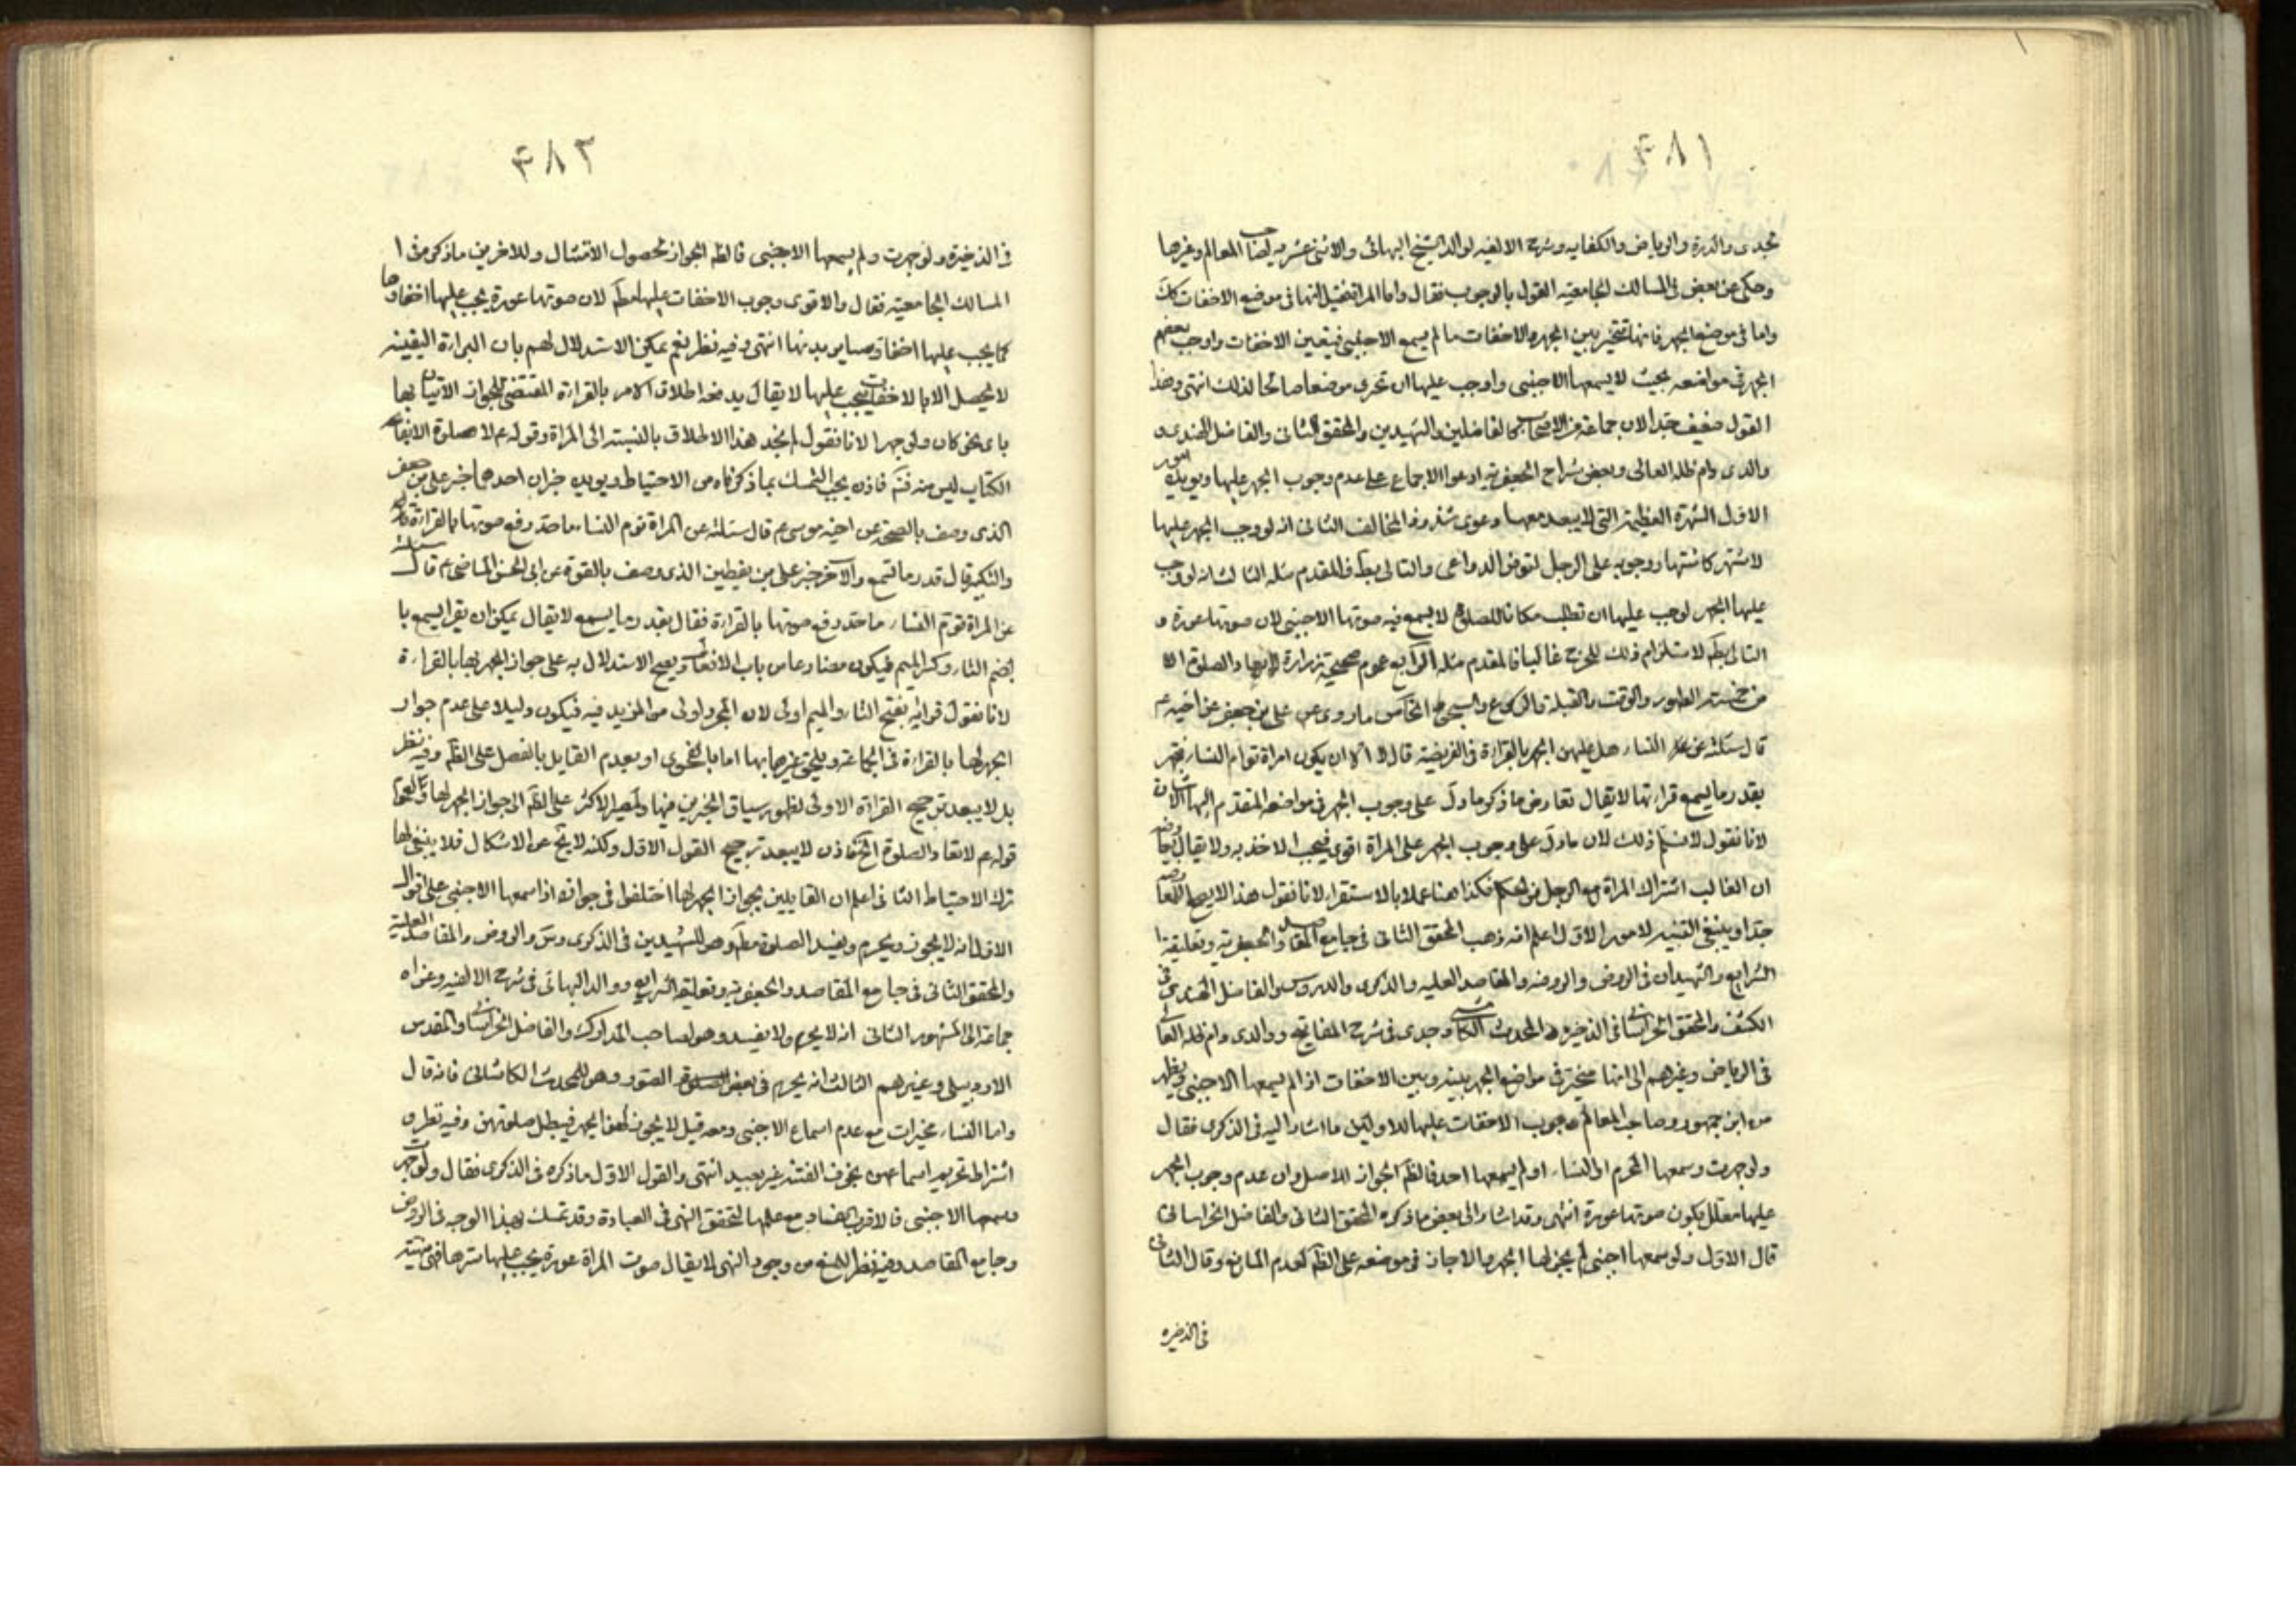 ٤٨١
لجدى والدرة والرياض والكفايه وشرح الالفيه لوالد الشيخ البهائى والاثنى عشريه لصاحب المعالم وغيرها
وحكى عن بعض فى المسالك الجامعيه القول بالوجوب فقال واما المراة فتخيل انها فى موضع الاخفات كك
واما فى موضع الجهر فانها تتخير بين الجهر والاخفات ما لم يسمع الاجنبى فيتعين الاخفات واوجب بعضهم
الجهر فى مواضعه بحيث لا يسمعها الاجنبى واوجب عليها ان تحرى موضعا صالحا لذلك انتهى وهذا
القول ضعيف جدا لان جماعة من الاصحاب كالفاضلين والشهيدين والمحقق الثانى والفاضل الهندى و
والدى دام ظله العالى وبعض شراح الجعفريه ادعوا الاجماع على عدم وجوب الجهر عليها ويويده امور
الاول الشهرة العظيمة التى لا يبعد معها دعوى شذوذ المخالف الثانى انه لو وجب الجهر عليها
لاشتهر كاشتهار وجوبه على الرجل لتوفر الدواعى والتالى بط فالمقدم مثله الثالث انه لو وجب
عليها الجهر لوجب عليها ان تطلب مكانا للصلوة لا يسمع فيه صوتها الاجنبى لان صوتها عورة و
التالى بط لاستلزام ذلك للحرج غالبا فالمقدم مثله الرابع عموم صحيحة زرارة لا يعاد الصلوة الا
من خمسة الطهور والوقت والقبلة والركوع والسجود الخامس ما روى عن على بن جعفر عن اخيه ع
قال سئلته عن النساء هل عليهن الجهر بالقراءة فى الفريضة قال لا الا ان يكون امراة توم النساء فتجهر
بقدر ما يسمع قراءتها لا يقال تعارض ما ذكر ما دل على وجوب الجهر فى مواضعه المتقدم اليها الاشارة
لانا نقول لا نسلم ذلك لان ما دل على وجوب الجهر على المراة اقوى فيجب الاخذ به ولا يقال
ان الغالب اشتراك المراة مع الرجل فى الحكم فكذا هنا عملا بالاستقراء لانا نقول هذا لا يصلح للمعارضة
جدا وينبغى التنبيه لامور الاول اعلم انه ذهب المحقق الثانى فى جامع المقاصد والجعفرية وتعليقة
الشرايع والشهيدان فى الروض والروضه والمقاصد العليه والذكرى والدروس والفاضل الهندى فى
الكشف والمحقق الخراسانى فى الذخيره والمحدث الكاشانى وجدى فى شرح المفاتيح ووالدى دام ظله العالى
فى الرياض وغيرهم الى انها مخيرة فى مواضع الجهر بينه وبين الاخفات اذا لم يسمعها الاجنبى ويظهر
من ابن جمهور وصاحب المعالم وجوب الاخفات عليها للاولين ما اشار اليه فى الذكرى فقال
ولو جهرت وسمعها المحرم او النساء او لم يسمعها احد فالظ الجواز للاصل وان عدم وجوب الجهر
عليها معلل بكون صوتها عورة انتهى وقد اشار الى بعض ما ذكره المحقق الثانى والفاضل الخراسانى
قال الاول ولو سمعها اجنبى لم يجز لها الجهر والا جاز فى موضعه على الظ لعدم المانع وقال الثانى
فى الذخيره
٤٨٢
فى الذخيرة ولو جهرت ولم يسمعها الاجنبى فالظ الجواز لحصول الامتثال وللاخرين ما ذكره فى ا
المسالك الجامعيه فقال والاقوى وجوب الاخفات عليها مط لان صوتها عورة يجب عليها اخفاوها
كما يجب عليها اخفاء ساير بدنها انتهى وفيه نظر نعم يمكن الاستدلال لهم بان البراءة اليقينه
لا يحصل الا بالاخفات فيجب عليها لا يقال يدفعه اطلاق الامر بالقراءة المقتضى لجواز الاتيان بها
باى نحو كان ولو جهرا لانا نقول لم نجد هذا الاطلاق بالنسبة الى المراة وقوله ع لا صلوة الا بفاتحة
الكتاب ليس منه فتم فاذن يجب التمسك بما ذكرناه من الاحتياط ويويده خبران احدهما خبر على بن جعفر
الذى وصف بالصحة عن اخيه موسى ع قال سئلته عن المراة توم النساء ما حد رفع صوتها بالقراءة
والتكبير قال قدر ما تسمع والاخر خبر على بن يقطين الذى وصف بالقوة عن ابى الحسن الماضى ع قال سئلته
عن المراة توم النساء ما حد رفع صوتها بالقراءة فقال بقدر ما يسمع لا يقال يمكن ان يقرا يسمع با
بضم التاء وكسر الميم فيكون مضارعا من باب الافعال ويصح الاستدلال به على جواز الجهر لها بالقراءة
لانا نقول قرائته بفتح التاء والميم اولى لان المجرد اولى من المزيد فيه فيكون دليلا على عدم جواز
الجهر لها بالقراءة فى الجماعة ويلحق غيرها بها اما بالفحوى او بعدم القايل بالفصل على الظ وفيه نظر
بل لا يبعد ترجيح القراءة الاولى لظهور سياق الخبرين فيها ولمصير الاكثر على الظ الى جواز الجهر لها ولعموم
قوله ع لا تعاد الصلوة الخ فاذن لا يبعد ترجيح القول الاول ولكنه لا يخ عن الاشكال فلا ينبغى لها
ترك الاحتياط الثانى اعلم ان القايلين بجواز الجهر لها اختلفوا فى جوازه اذا سمعها الاجنبى على اقوال
الاول انه لا يجوز ويحرم ويفسد الصلوة مط وهو للشهيدين فى الذكرى وس والروض والمقاصد العلية
والمحقق الثانى فى جامع المقاصد والجعفرية وتعليقه الشرايع ووالد البهائى فى شرح الالفيه وعزاه
جماعة الى المشهور الثانى انه لا يحرم ولا يفسد وهو لصاحب المدارك والفاضل الخراسانى والمقدس
الاردبيلى وغيرهم الثالث انه يحرم فى بعض الصور وهو للمحدث الكاشانى فانه قال
واما النساء مخيرات مع عدم اسماع الاجنبى ومعه قيل لا يجوز لهن الجهر فيبطل صلوتهن وفيه نظر و
اشتراط تحريم اسماعهن بخوف الفتنة غير بعيد انتهى والقول الاول ما ذكره فى الذكرى فقال ولو جهرت
وسمعها الاجنبى فالاقرب الفساد مع علمها لتحقق النهى فى العبادة وقد تمسك بهذا الوجه فى الروض
وجامع المقاصد وفيه نظر للمنع من وجود النهى لا يقال صوت المراة عورة يجب عليها سترها